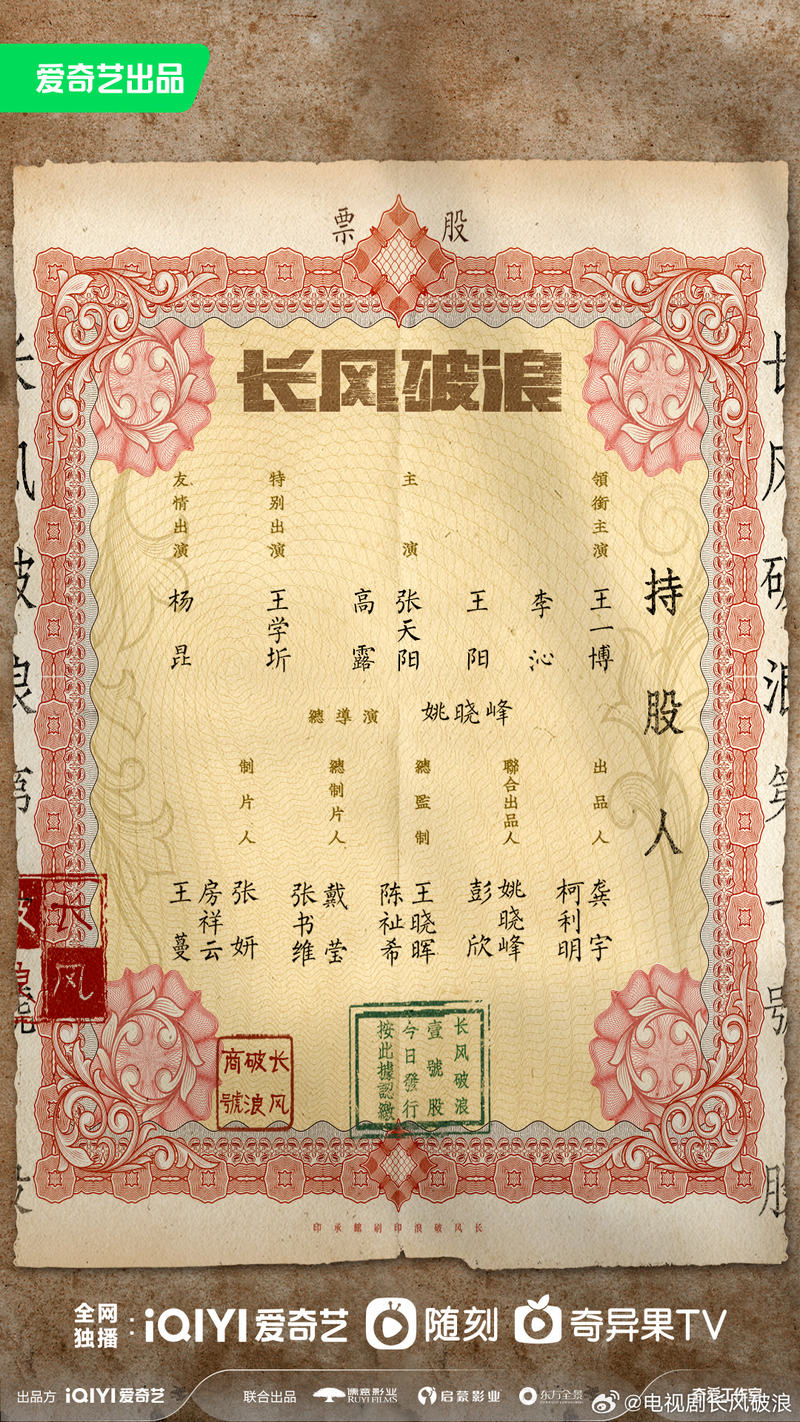 爱奇艺出品
股票
长风破浪
持股人
領銜主演
王一博
李沁
主演
王阳
张天阳
高露
特别出演
王学圻
友情出演
杨昆
總導演 姚晓峰
出品人
龚宇
柯利明
聯合出品人
姚晓峰
彭欣
總監制
王晓晖
陈祉希
總制片人
戴莹
张书维
制片人
张妍
房祥云
王蔓
长风破浪第一号
长风破浪
长风破浪商號
长风破浪
壹號股
今日發行
按此據認繳
长风破浪印刷館承印
全网独播：iQIYI爱奇艺 随刻 奇异果TV
出品方 iQIYI爱奇艺 联合出品 儒意影业 RUYI FILMS 启蒙影业 东方全景
@电视剧长风破浪